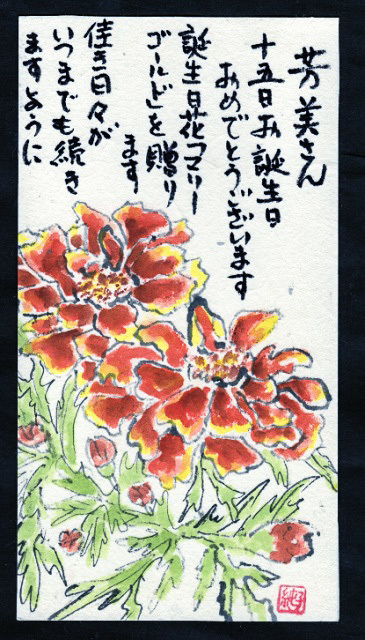 芳美さん
十五日お誕生日
おめでとうございます
誕生日花「マリー
ゴールド」を贈り
ます
佳き日々が
いつまでも続き
ますように